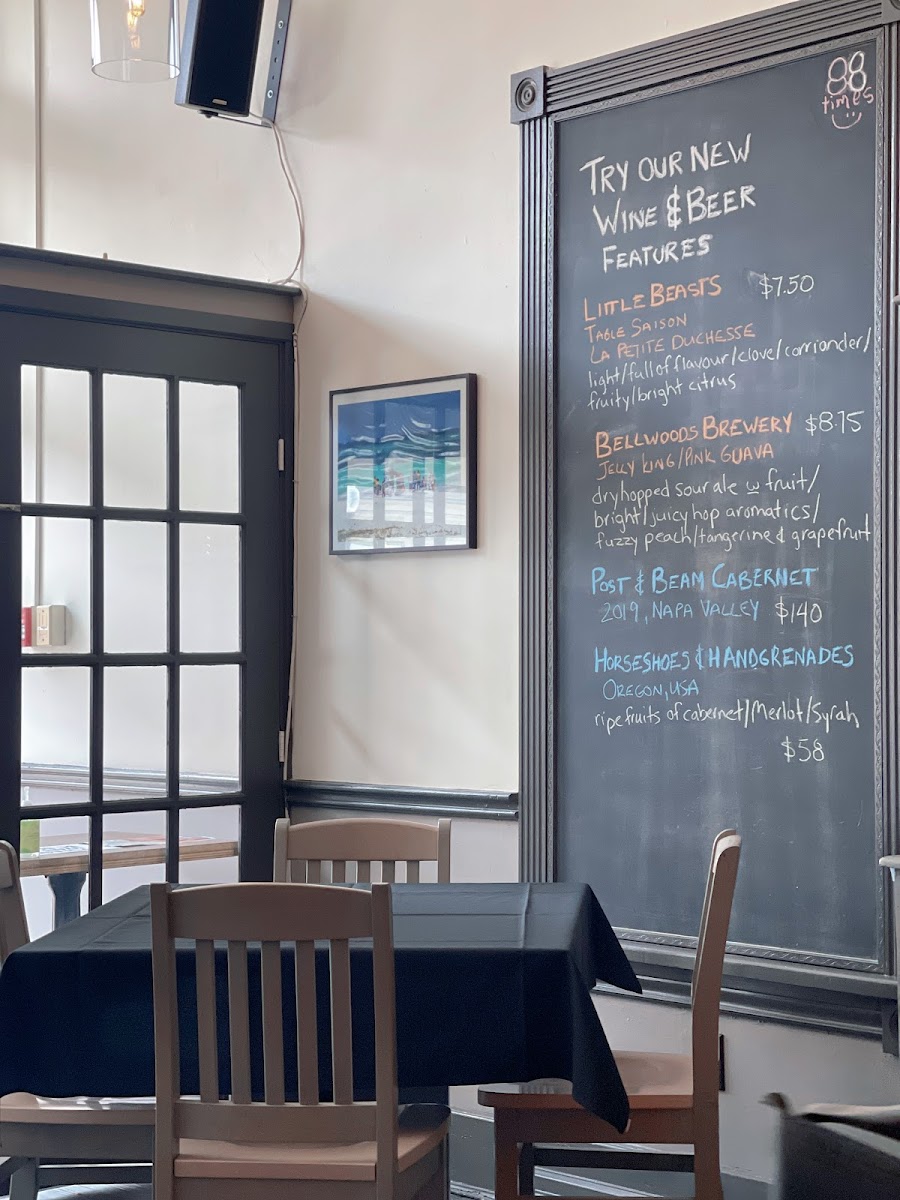 88
times
TRY OUR NEW
WINE & BEER
FEATURES
LITTLE BEASTS $7.50
TABLE SAISON
LA PETITE DUCHESSE
light/full of flavour/clove/corriander/
fruity/bright citrus
BELLWOODS BREWERY $8.75
JELLY KING/PINK GUAVA
dryhopped sour ale w fruit/
bright/juicy hop aromatics/
fuzzy peach/tangerine & grapefruit
POST & BEAM CABERNET
2019, NAPA VALLEY $140
HORSESHOES & HANDGRENADES
OREGON, USA
ripe fruits of cabernet/Merlot/Syrah
$58